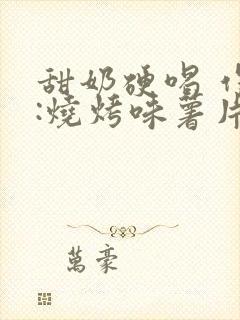 甜奶硬唱 作
:燒烤味薯片
萬豪